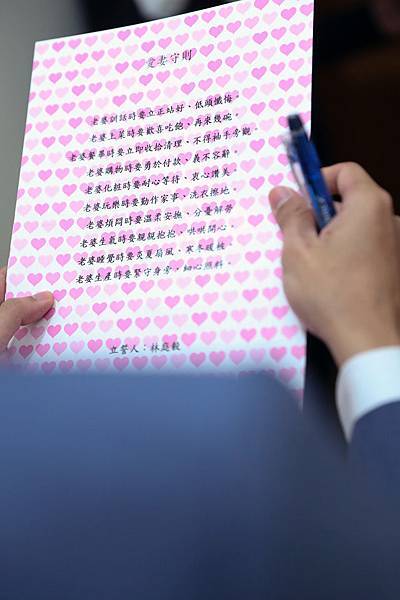 愛妻守則
老婆訓話時要立正站好、低頭懺悔。
老婆上菜時要歡喜吃飽、再來幾碗。
老婆繁事時要立即收拾清理、不得袖手旁觀。
老婆購物時要勇於付款、義不容辭。
老婆化粧時要耐心等待、衷心讚美。
老婆玩樂時要動作家事、洗衣擦地。
老婆煩悶時要溫柔安撫、分憂解勞
老婆生氣時要親親抱抱、哄哄開心。
老婆睡覺時要炎夏扇風、寒冬暖被。
老婆生產時要緊守身旁、細心照料。
立誓人：林庭毅